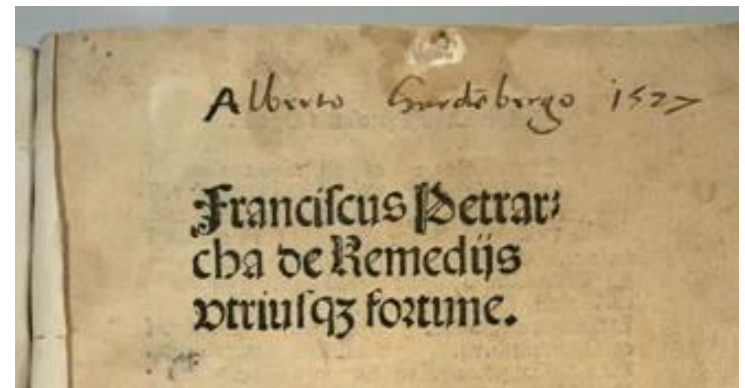 Alberto Hardēbergo 1527
Franciſcus Petrar⸗
cha de Remedijs
vtriuſqꝫ foꝛtune.